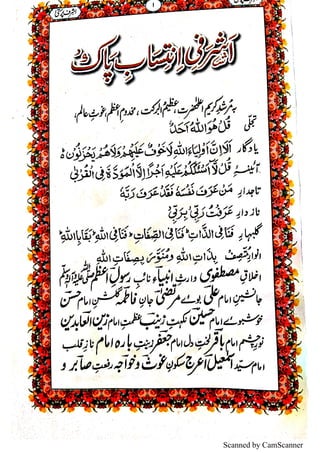 ۱
اشرفی انتساب پاک
بہ مرشد کریم، اعلٰحضرت، عظیم البرکت، مخدوم اعظم، غوث عالم،
تجلی قُلْ هُوَ اللّٰهُ اَحَدٌ
یادگار اَلَا اِنَّ اَوْلِيَاءَ اللّٰهِ لَا خَوْفٌ عَلَيْهِمْ وَلَا هُمْ يَحْزَنُوْنَ
آئینہ قُلْ لَا اَسْئَلُكُمْ عَلَيْهِ اَجْرًا اِلَّا الْمَوَدَّةَ فِي الْقُرْبٰى
تاجدار مَنْ عَرَفَ نَفْسَهُ فَقَدْ عَرَفَ رَبَّهُ
نازدار عَرَفْتُ رَبِّيْ بِرَبِّيْ
گلبہار فَنَا فِي الذَّاتِ، فَنَا فِي الصِّفَاتِ، فَنَا فِي اللّٰهِ، بَقَا بِاللّٰهِ
انوار مُتَّصِف بِذَاتِ اللّٰهِ وَمُنَوَّر بِصِفَاتِ اللّٰهِ
اخلاق مصطفوی وارث انبیاء نائب رسول اعظم ﷺ
جانشین امام علی بوئے مرتضیٰ جان فاطمہ گلشن امام حسن
خوشبوئے امام حسین نکہت زینب عظمت امام زین العابدین
نور چشم امام باقر لخت دل امام جعفر زینت پارہ امام ناز قلب
امام سید اسمعیل اعرج سکون غوث و خواجہ رفعت صابر و
Scanned by CamScanner